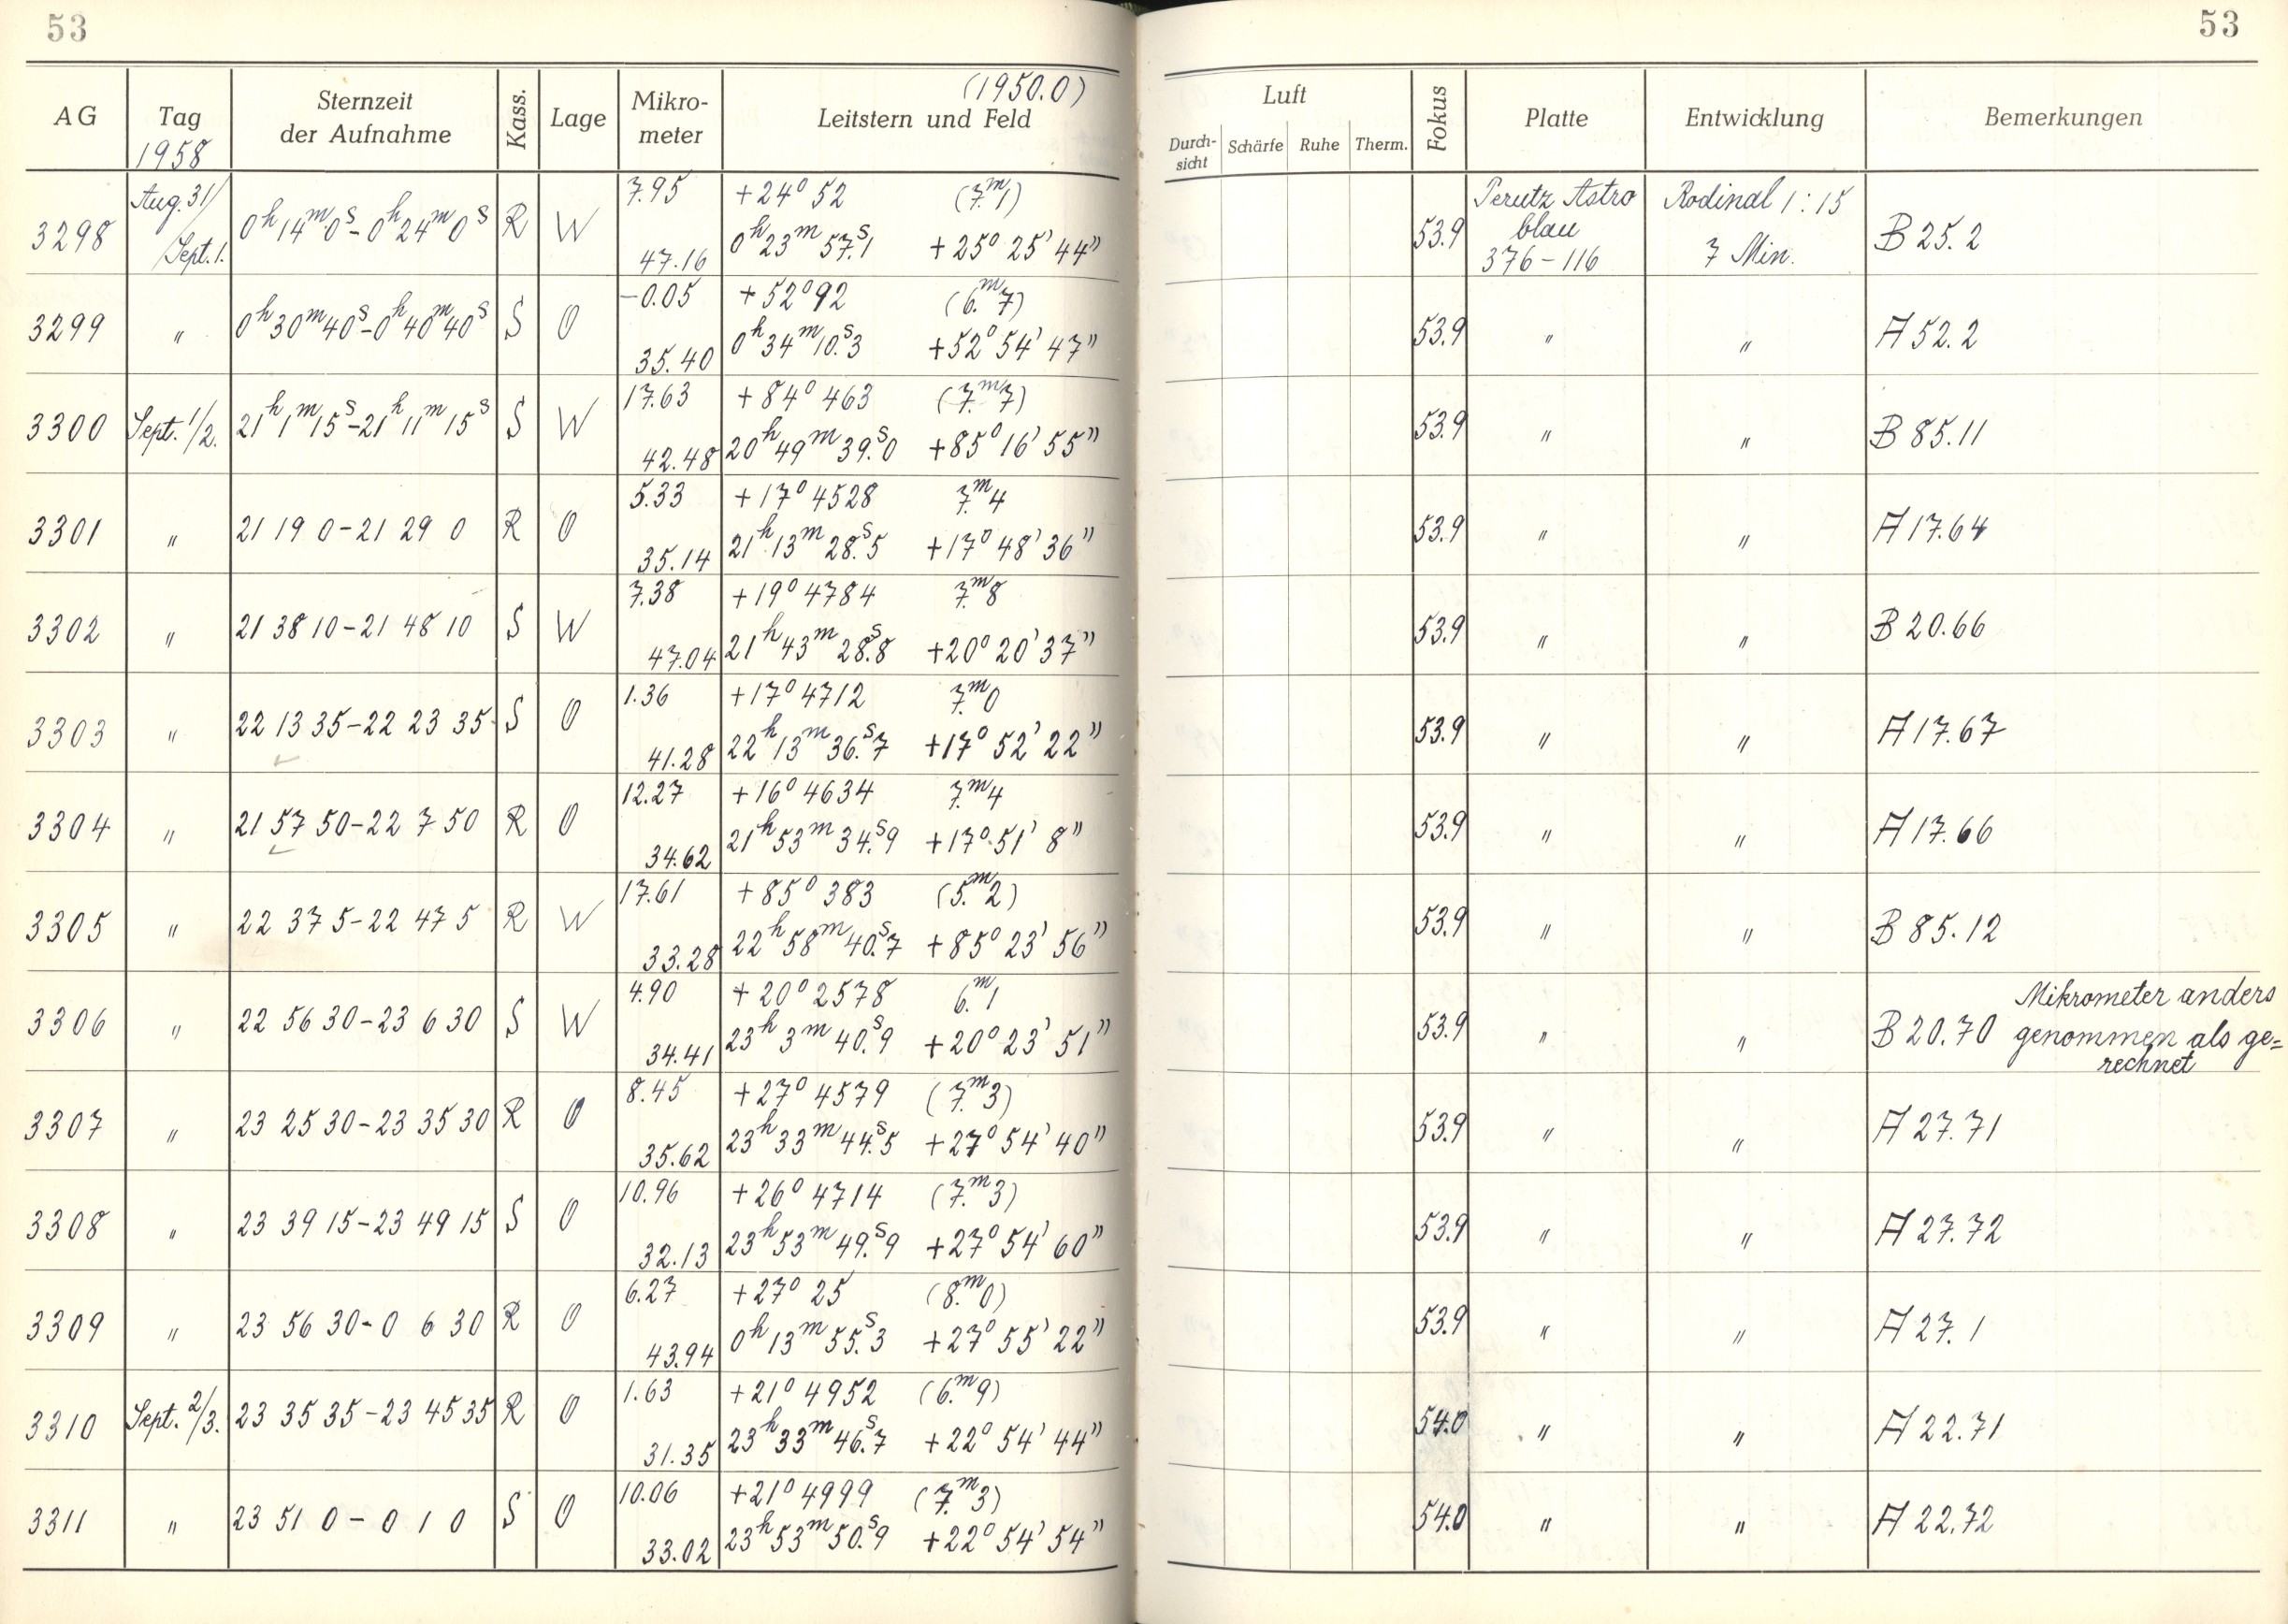 53
53
AG Tag Sternzeit der Aufnahme Kass. Lage Mikro-meter Leitstern und Feld (1950.0) Luft Durch-sicht Schärfe Ruhe Therm. Fokus Platte Entwicklung Bemerkungen
1958
Aug. 31/ 7.95 +24° 52 (7.m1) Perutz Astro Rodinal 1:15
3298 0h14m0s-0h24m0s R W 53.9 blau B 25.2
/Sept. 1. 47.16 0h23m57.s1 +25° 25' 44" 376-116 7 Min.
-0.05 +52° 92 (6.m7)
3299 " 0h30m40s-0h40m40s S O 53.9 " " A 52.2
35.40 0h34m10.s3 +52° 54' 47"
17.63 +84° 463 (7.m7)
3300 Sept. 1/2. 21h1m15s-21h11m15s S W 53.9 " " B 85.11
42.48 20h49m39.s0 +85° 16' 55"
5.33 +17° 4528 7.m4
3301 " 21 19 0-21 29 0 R O 53.9 " " A 17.64
35.14 21h13m28.s5 +17° 48' 36"
7.38 +19° 4784 7.m8
3302 " 21 38 10-21 48 10 S W 53.9 " " B 20.66
47.04 21h43m28.s8 +20° 20' 37"
1.36 +17° 4712 7.m0
3303 " 22 13 35-22 23 35 S O 53.9 " " A 17.67
41.28 22h13m36.s7 +17° 52' 22"
12.27 +16° 4634 7.m4
3304 " 21 57 50-22 7 50 R O 53.9 " " A 17.66
34.62 21h53m34.s9 +17° 51' 8"
17.61 +85° 383 (5.m2)
3305 " 22 37 5-22 47 5 R W 53.9 " " B 85.12
33.28 22h58m40.s7 +85° 23' 56"
4.90 +20° 2578 6.m1 Mikrometer anders
3306 " 22 56 30-23 6 30 S W 53.9 " " B 20.70 genommen als ge=
34.41 23h3m40.s9 +20° 23' 51" rechnet
8.45 +27° 4579 (7.m3)
3307 " 23 25 30-23 35 30 R O 53.9 " " A 27.71
35.62 23h33m44.s5 +27° 54' 40"
10.96 +26° 4714 (7.m3)
3308 " 23 39 15-23 49 15 S O 53.9 " " A 27.72
32.13 23h53m49.s9 +27° 54' 60"
6.27 +27° 25 (8.m0)
3309 " 23 56 30-0 6 30 R O 53.9 " " A 27.1
43.94 0h13m55.s3 +27° 55' 22"
1.63 +21° 4952 (6.m9)
3310 Sept. 2/3. 23 35 35-23 45 35 R O 54.0 " " A 22.71
31.35 23h33m46.s7 +22° 54' 44"
10.06 +21° 4999 (7.m3)
3311 " 23 51 0-0 1 0 S O 54.0 " " A 22.72
33.02 23h53m50.s9 +22° 54' 54"